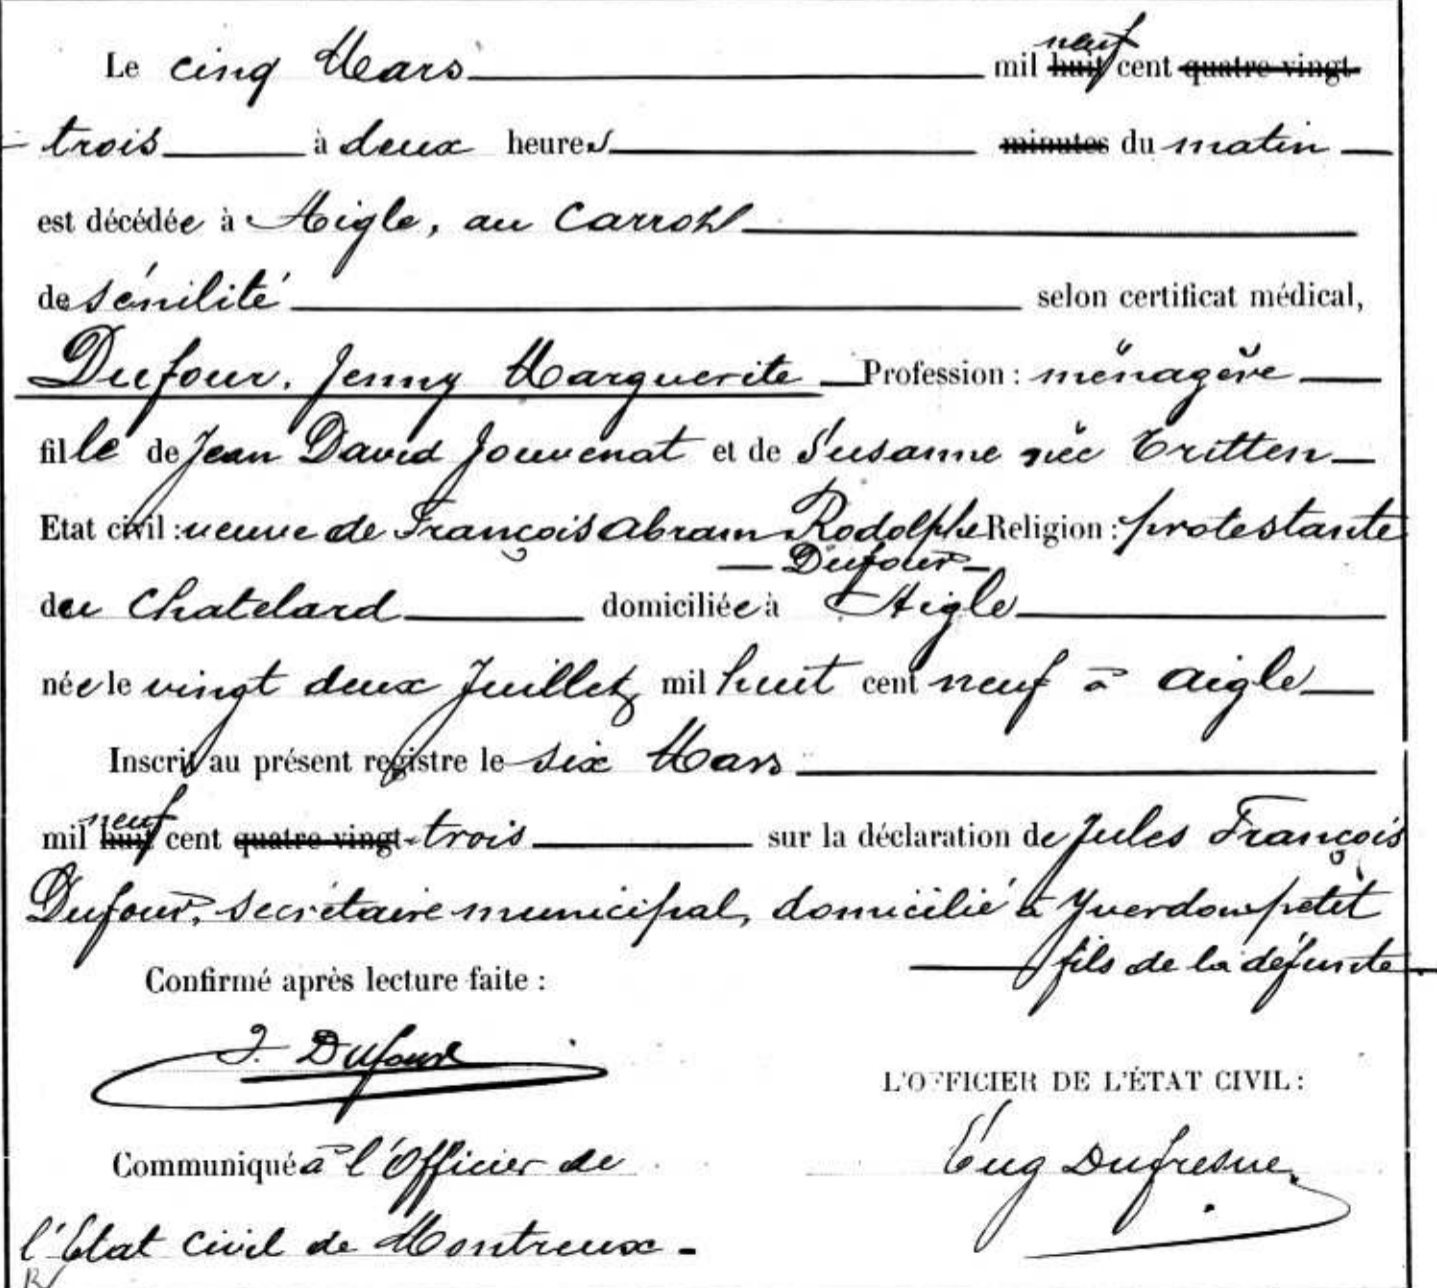 Le cinq Mars mil neuf huit cent quatre-vingt-
trois à deux heures minutes du matin
est décédée à Aigle, au Carroz
de sénilité selon certificat médical,
Dufour, Jenny Marguerite Profession : ménagère
fille de Jean David Jouvenat et de Susanne née Tritten
Etat civil : veuve de François Abram Rodolphe Religion : protestante
Dufour
du Chatelard domiciliée à Aigle
née le vingt deux Juillet mil huit cent neuf à Aigle
Inscrit au présent registre le six Mars
mil neuf huit cent quatre-vingt-trois sur la déclaration de Jules François
Dufour, secrétaire municipal, domicilié à Yverdon petit
fils de la défunte
Confirmé après lecture faite :
J. Dufour
L'OFFICIER DE L'ÉTAT CIVIL :
Communiqué à l'Officier de
Eug Dufresne
l'Etat civil de Montreux